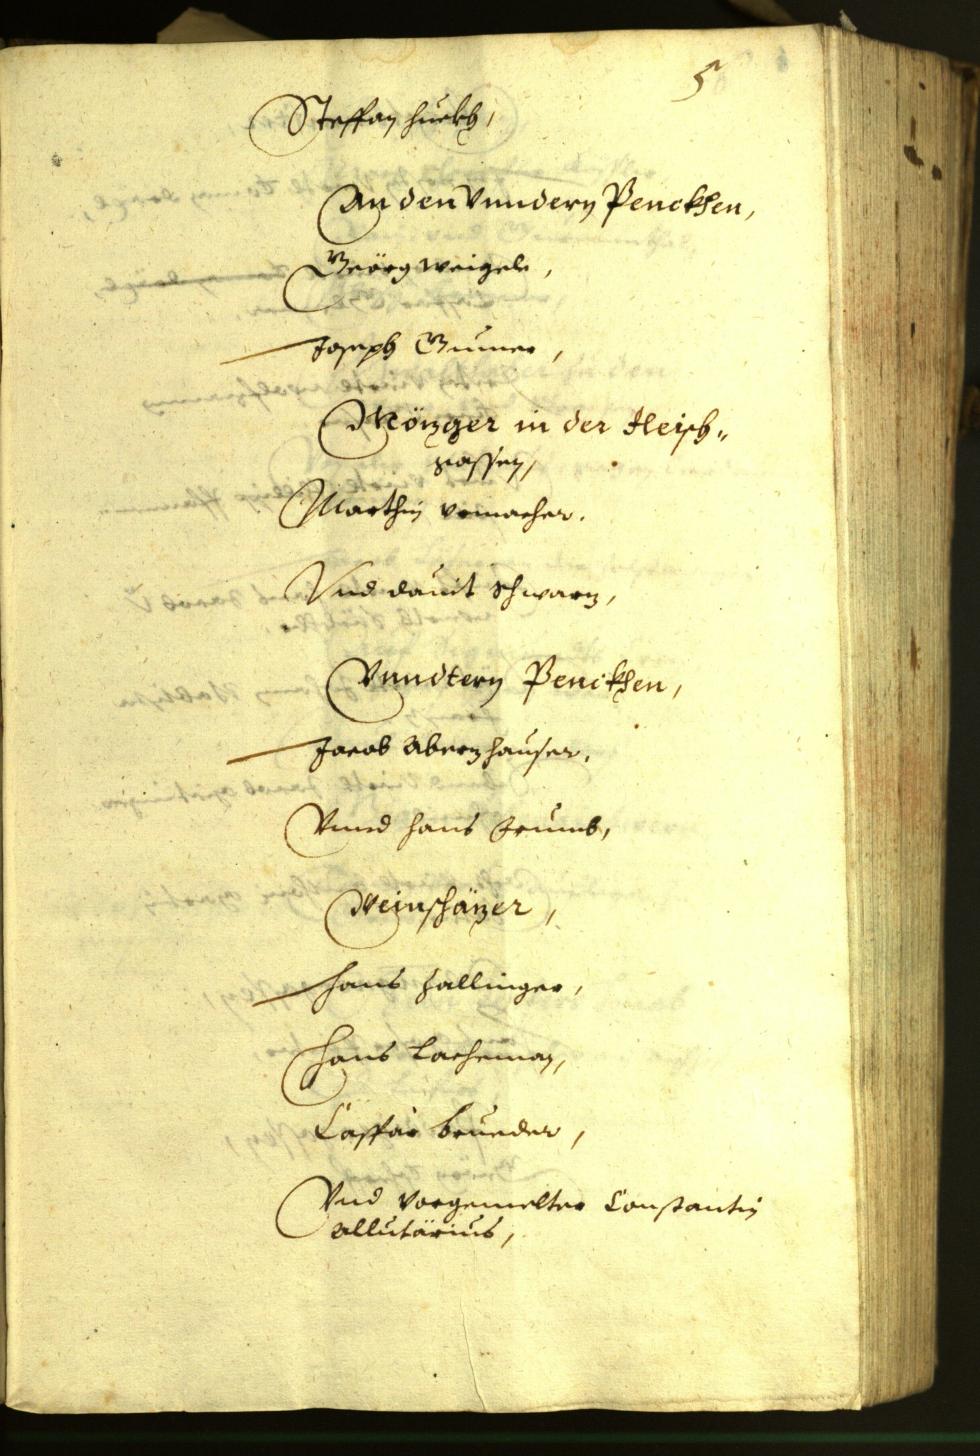 5
Steffan Huekh,
An den Unndern Penckhen,
Geörg Weigele,
Joseph Gumer,
Mözger in der Fleisch„
gassen,
Marthin Urmacher.
Und Dauit Schwarz,
Unndtern Penckhen,
Jacob Abertzhauser.
Unnd Hans Trumb,
Weinschäzer,
Hans Hallinger,
Hans Lacheman,
Casspar Brueder,
Und vorgemelter Constantin
Allutärius,